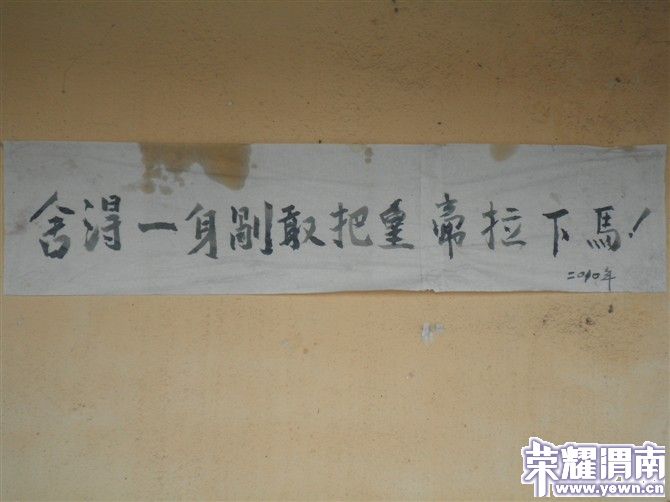 舍得一身剐敢把皇帝拉下馬！
二〇一〇年
荣耀渭南
www.yewn.cn